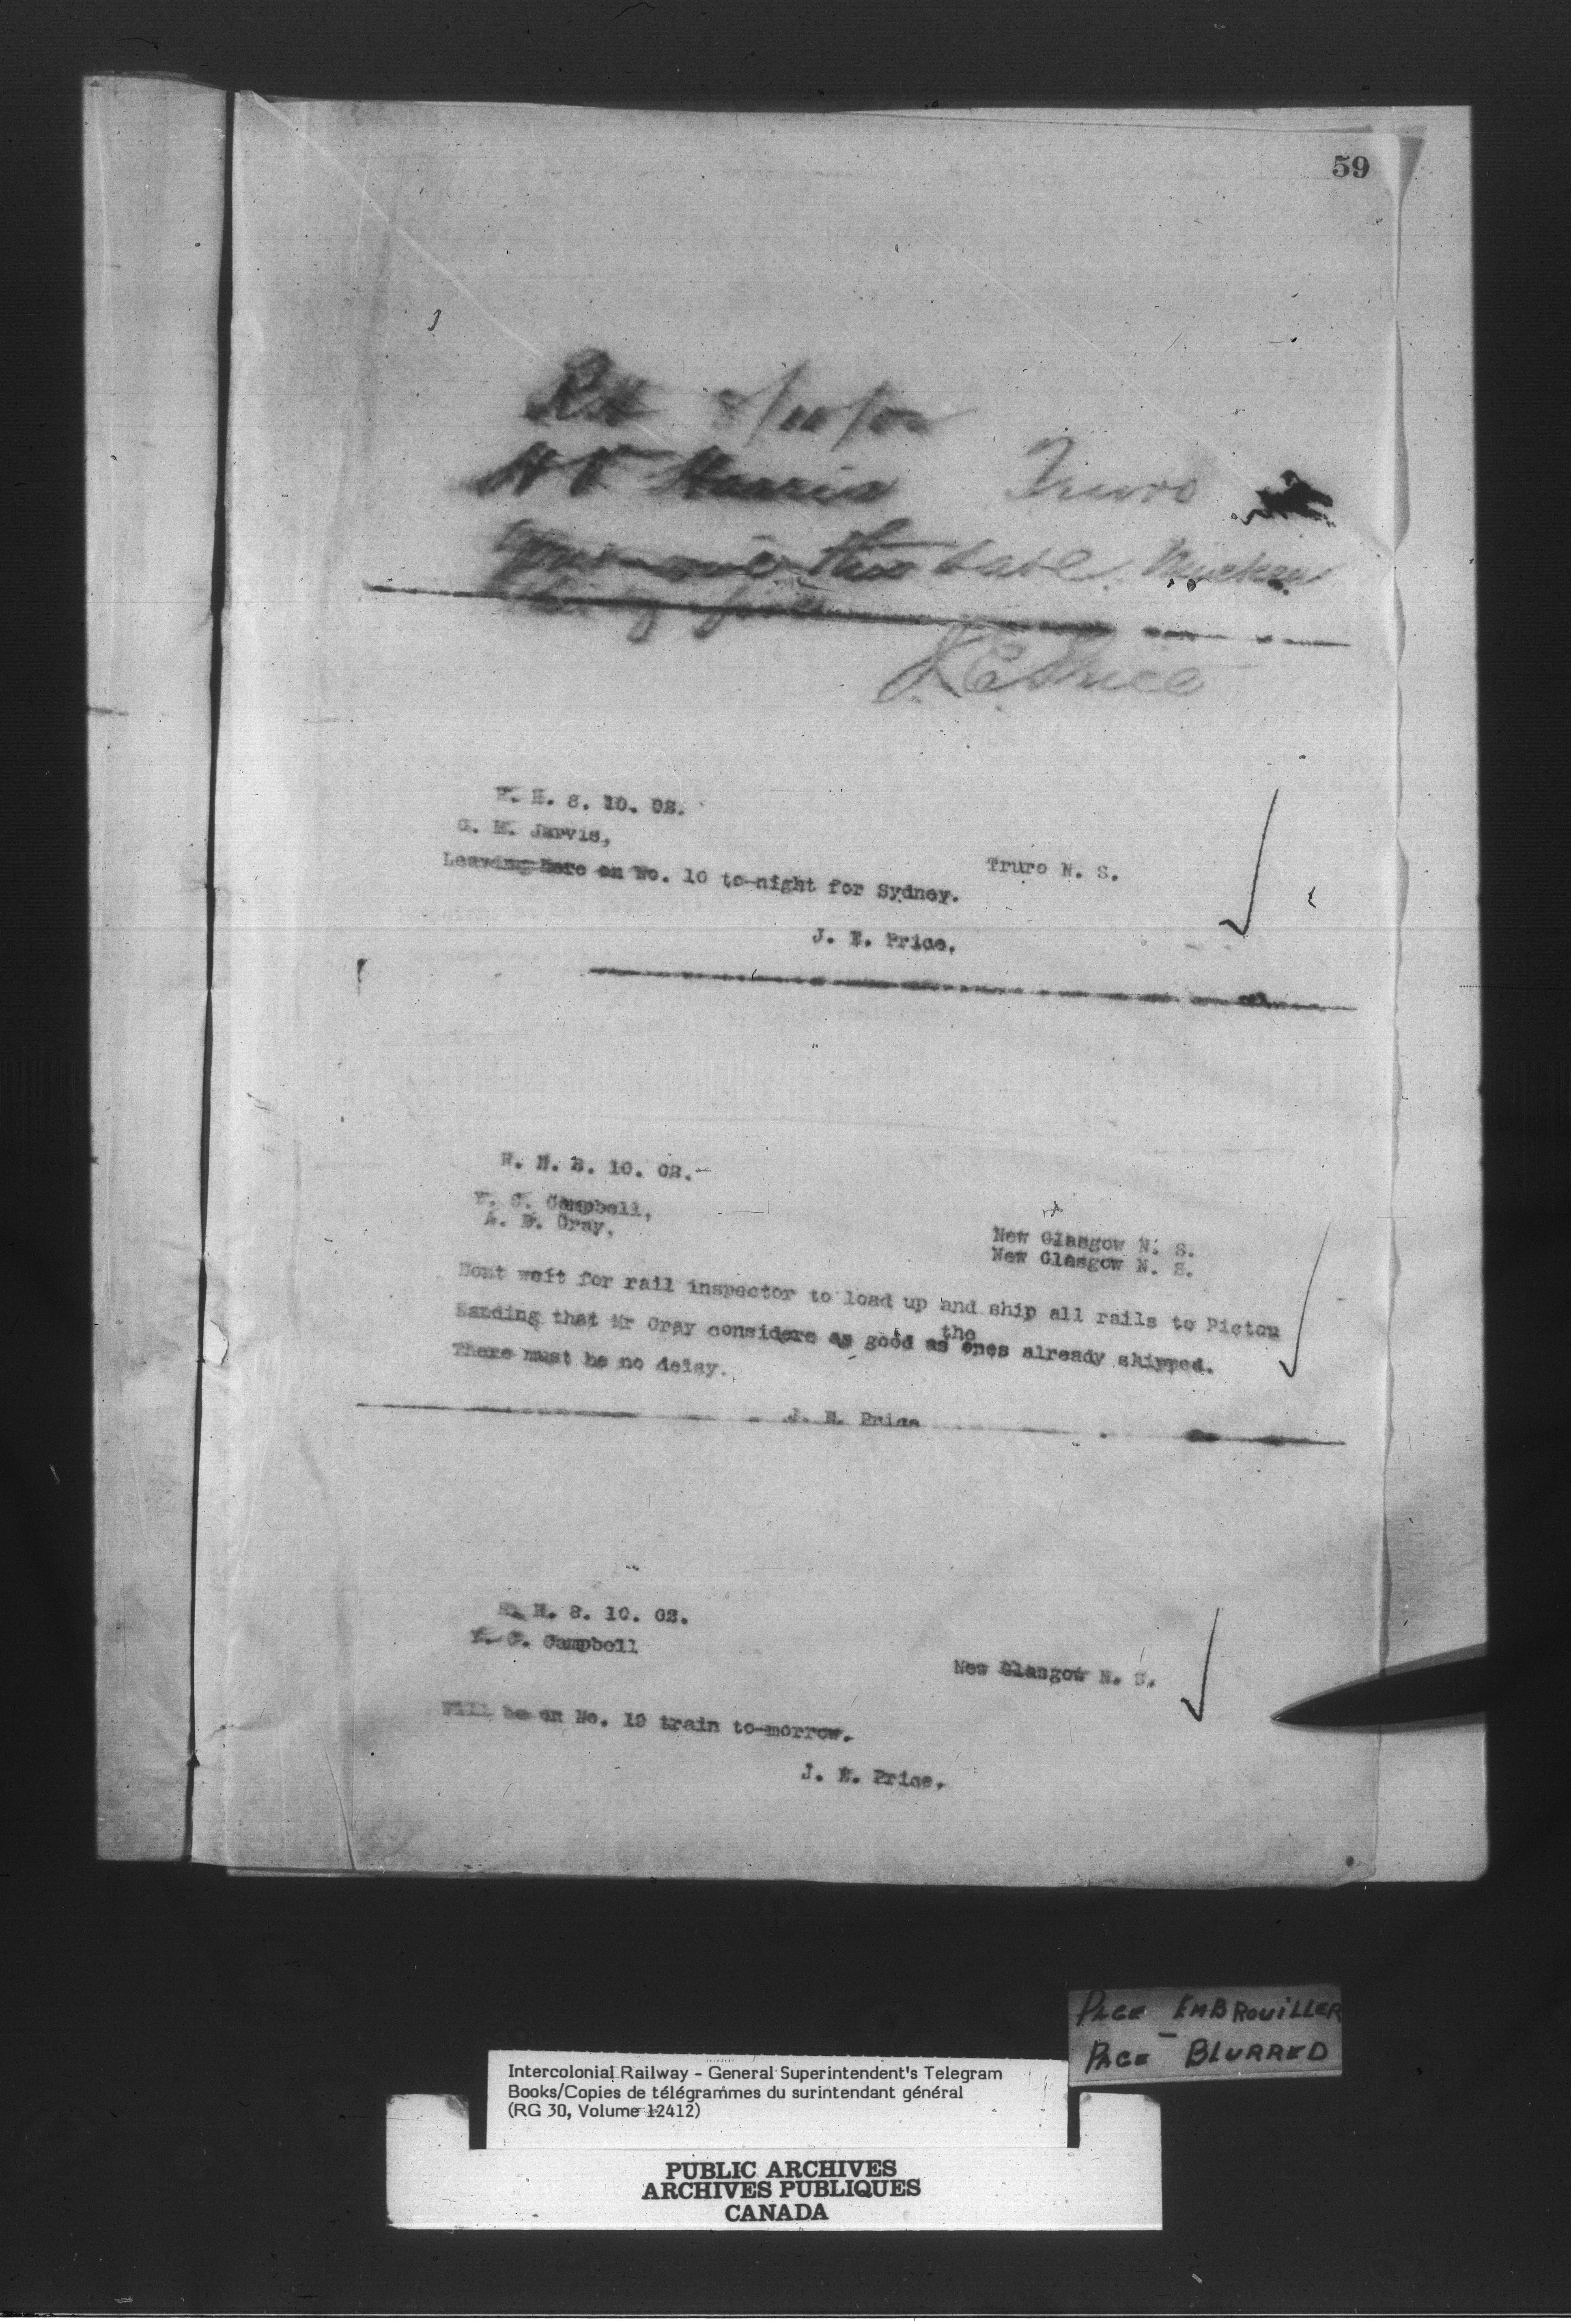 59
RH 8/10/02
H V Harris Truro
Your wire this date.
J E Price
R. H. 8. 10. 02.
G. M. Jarvis,
Truro N. S.
Leaving here on No. 10 to-night for Sydney.
J. E. Price.
R. H. 8. 10. 02.-
Y. C. Campbell,
New Glasgow N. S.
A. D. Gray,
New Glasgow N. S.
Dont wait for rail inspector to load up and ship all rails to Pictou
Landing that Mr Gray considers as good as the ones already shipped.
There must be no delay.
J. E. Price
R. H. 8. 10. 02.
Y. C. Campbell
New Glasgow N. S.
Will be on No. 19 train to-morrow.
J. E. Price.
PAGE EMBROUILLER
PAGE BLURRED
Intercolonial Railway - General Superintendent's Telegram
Books/Copies de télégrammes du surintendant général
(RG 30, Volume 12412)
PUBLIC ARCHIVES
ARCHIVES PUBLIQUES
CANADA